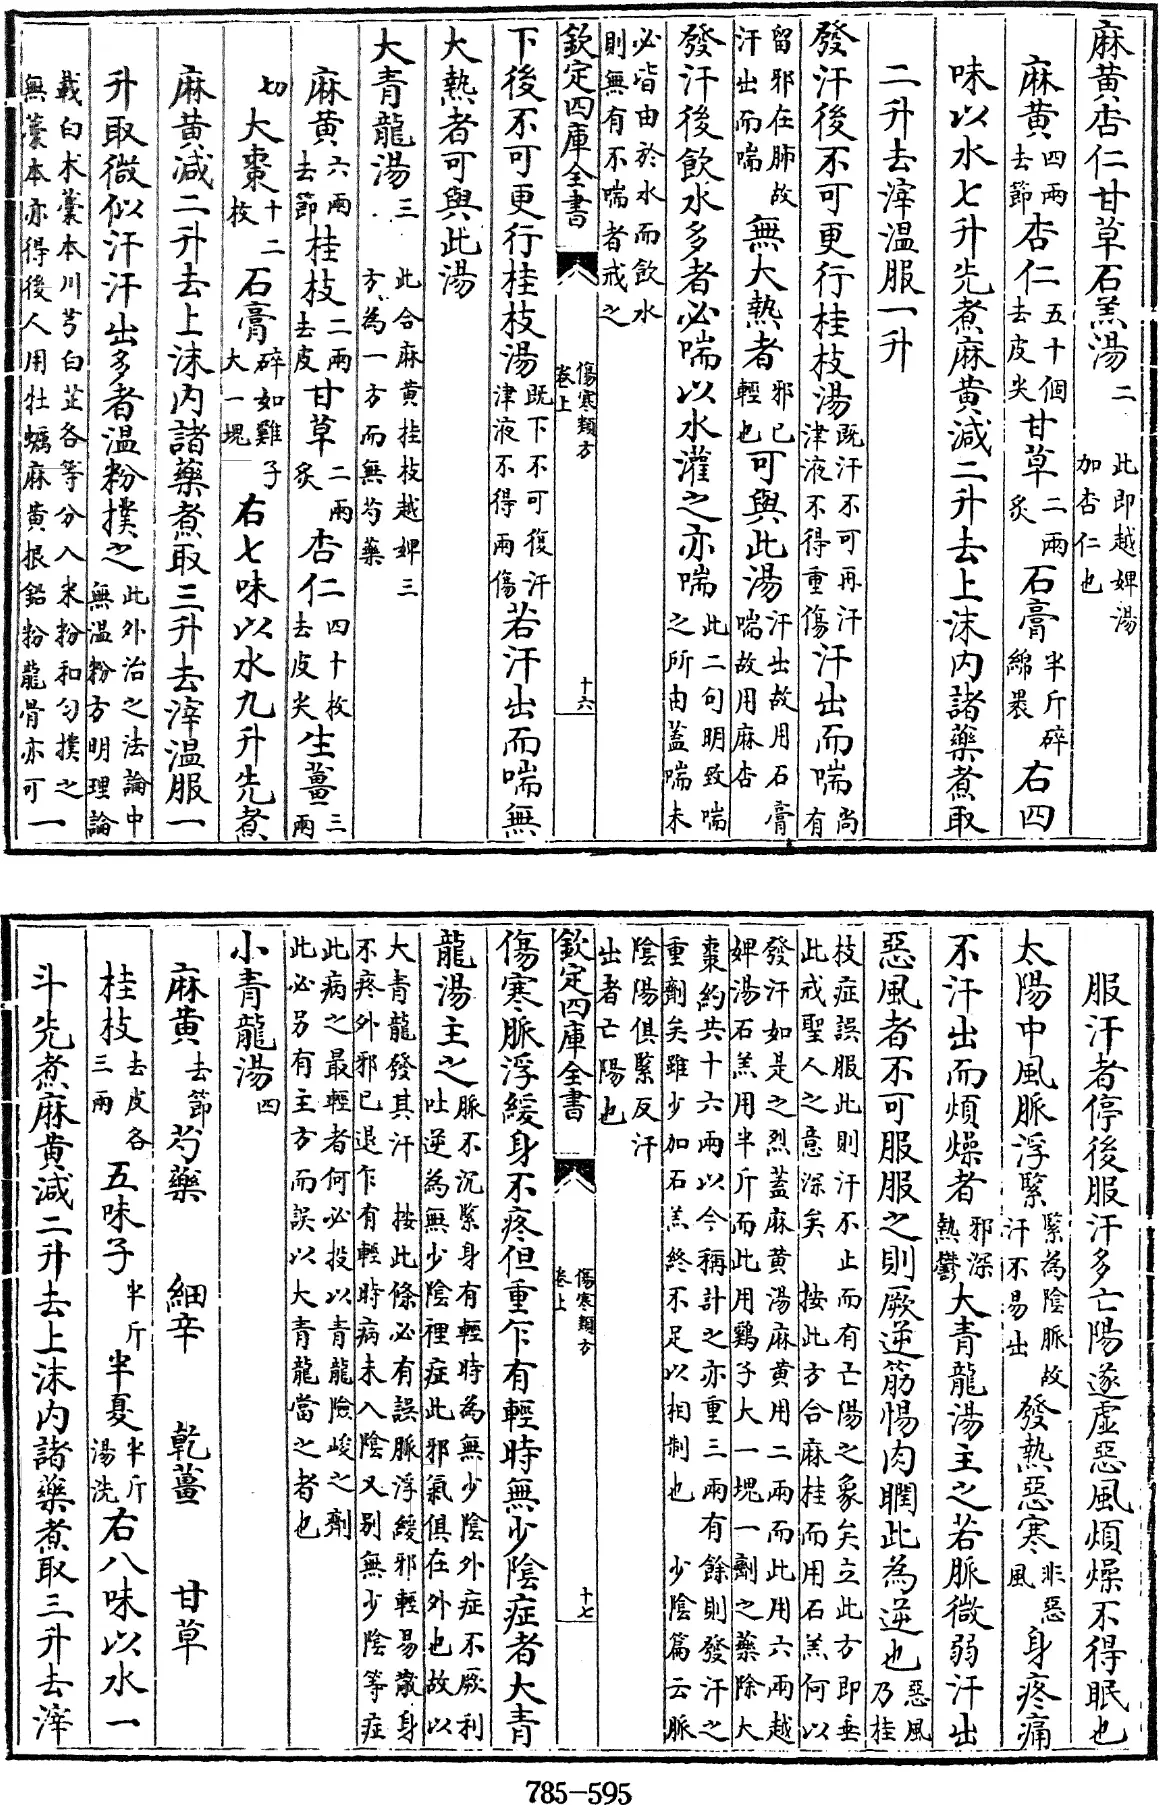 麻黄杏仁甘草石羔湯二 此即越婢湯加杏仁也
麻黄四兩去節杏仁五十個去皮尖甘草二兩炙石膏半斤碎綿裹右四
味以水七升先煮麻黄減二升去上沫内諸藥煮取
二升去滓温服一升
發汗後不可更行桂枝湯既汗不可再汗津液不得重傷汗出而喘尚有
留邪在肺故汗出而喘無大熱者邪已輕也可與此湯汗出故用石膏喘故用麻杏
發汗後飲水多者必喘以水灌之亦喘此二句明致喘之所由蓋喘未
必皆由於水而飲水則無有不喘者戒之
欽定四庫全書 傷寒類方卷上 十六
下後不可更行桂枝湯既下不可復汗津液不得兩傷若汗出而喘無
大熱者可與此湯
大青龍湯三 此合麻黄桂枝越婢三方為一方而無芍藥
麻黄六兩去節桂枝二兩去皮甘草二兩炙杏仁四十枚去皮尖生薑三兩
切大棗十二枚石膏碎如雞子大一塊右七味以水九升先煮
麻黄減二升去上沫内諸藥煮取三升去滓温服一
升取微似汗汗出多者温粉撲之此外治之法論中無温粉方明理論
載白术藁本川芎白芷各等分入米粉和匀撲之無藁本亦得後人用牡蠣麻黄根鉛粉龍骨亦可一
服汗者停後服汗多亡陽遂虛惡風煩燥不得眠也
太陽中風脈浮緊緊為陰脈故汗不易出發熱惡寒非惡風身疼痛
不汗出而煩燥者邪深熱鬱大青龍湯主之若脈微弱汗出
惡風者不可服服之則厥逆筋惕肉瞤此為逆也惡風乃桂
枝症誤服此則汗不止而有亡陽之象矣立此方即垂此戒聖人之意深矣 按此方合麻桂而用石羔何以
發汗如是之烈蓋麻黄湯麻黄用二兩而此用六兩越婢湯石羔用半斤而此用鷄子大一塊一劑之藥除大
棗約共十六兩以今稱計之亦重三兩有餘則發汗之重劑矣雖少加石羔終不足以相制也 少陰篇云脈
陰陽俱緊反汗出者亡陽也
欽定四庫全書 傷寒類方卷上 十七
傷寒脈浮緩身不疼但重乍有輕時無少陰症者大青
龍湯主之脈不沉緊身有輕時為無少陰外症不厥利吐逆為無少陰裡症此邪氣俱在外也故以
大青龍發其汗 按此條必有誤脈浮緩邪輕易散身不疼外邪已退乍有輕時病未入陰又别無少陰等症
此病之最輕者何必投以青龍險峻之劑此必另有主方而誤以大青龍當之者也
小青龍湯四
麻黄去節芍藥 細辛 乾薑 甘草
桂枝去皮各三兩五味子半斤半夏半斤湯洗右八味以水一
斗先煮麻黄減二升去上沫内諸藥煮取三升去滓
785-595